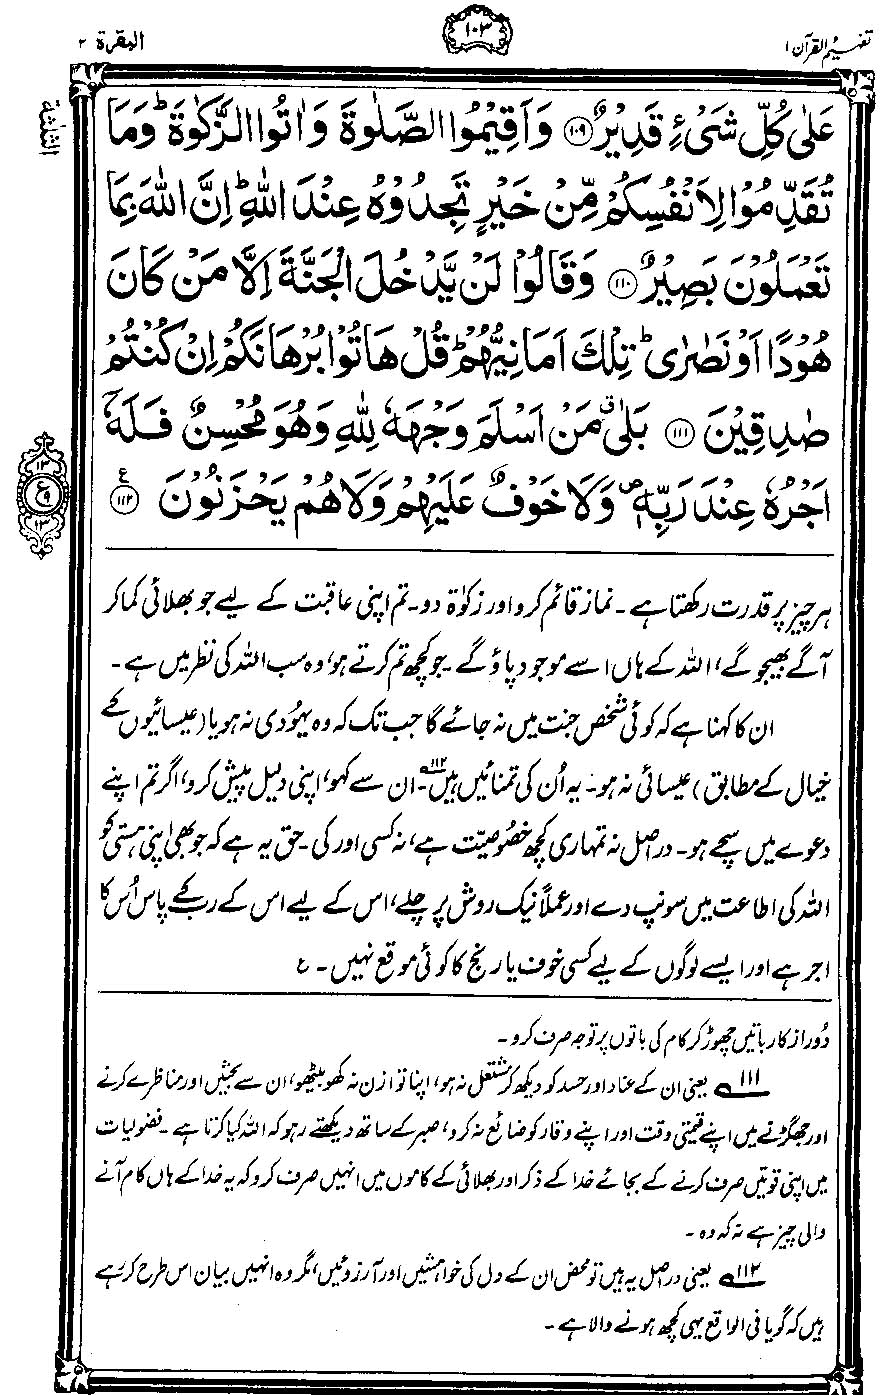 تفہیم القرآن ۱
۱۰۳
البقرة ۲
الثلثة
عَلٰى كُلِّ شَىْءٍ قَدِيْرٌ ﴿۱۰۹﴾ وَاَقِيْمُوا الصَّلٰوةَ وَاٰتُوا الزَّكٰوةَ ؕ وَمَا
تُقَدِّمُوْا لِاَنْفُسِكُمْ مِّنْ خَيْرٍ تَجِدُوْهُ عِنْدَ اللّٰهِ ؕ اِنَّ اللّٰهَ بِمَا
تَعْمَلُوْنَ بَصِيْرٌ ﴿۱۱۰﴾ وَقَالُوْا لَنْ يَّدْخُلَ الْجَنَّةَ اِلَّا مَنْ كَانَ
هُوْدًا اَوْ نَصٰرٰى ؕ تِلْكَ اَمَانِيُّهُمْ ؕ قُلْ هَاتُوْا بُرْهَانَكُمْ اِنْ كُنْتُمْ
صٰدِقِيْنَ ﴿۱۱۱﴾ بَلٰى ۗ مَنْ اَسْلَمَ وَجْهَهٗ لِلّٰهِ وَهُوَ مُحْسِنٌ فَلَهٗۤ
اَجْرُهٗ عِنْدَ رَبِّهٖ ۪ وَلَا خَوْفٌ عَلَيْهِمْ وَلَا هُمْ يَحْزَنُوْنَ ﴿۱۱۲﴾ ع
۱۳
ع ۹
۱۳
ہر چیز پر قدرت رکھتا ہے۔ نماز قائم کرو اور زکوٰۃ دو۔ تم اپنی عاقبت کے لیے جو بھلائی کما کر
آگے بھیجو گے، اللہ کے ہاں اسے موجود پاؤ گے۔ جو کچھ تم کرتے ہو، وہ سب اللہ کی نظر میں ہے۔
ان کا کہنا ہے کہ کوئی شخص جنت میں نہ جائے گا جب تک کہ وہ یہودی نہ ہو یا (عیسائیوں کے
خیال کے مطابق) عیسائی نہ ہو۔ یہ اُن کی تمنائیں ہیں۱۱۲۔ ان سے کہو، اپنی دلیل پیش کرو، اگر تم اپنے
دعوے میں سچے ہو۔ دراصل نہ تمہاری کچھ خصُوصیّت ہے، نہ کسی اور کی۔ حق یہ ہے کہ جو بھی اپنی ہستی کو
اللہ کی اطاعت میں سونپ دے اور عملاً نیک روش پر چلے، اس کے لیے اس کے رب کے پاس اُس کا
اجر ہے اور ایسے لوگوں کے لیے کسی خوف یا رنج کا کوئی موقع نہیں۔ ع
دُور از کار باتیں چھوڑ کر کام کی باتوں پر توجہ صرف کرو۔
۱۱۱ یعنی ان کے عناد اور حسد کو دیکھ کر مشتعل نہ ہو، اپنا توازن نہ کھو بیٹھو، ان سے بحثیں اور مناظرے کرنے
اور جھگڑنے میں اپنے قیمتی وقت اور اپنے وقار کو ضائع نہ کرو، صبر کے ساتھ دیکھتے رہو کہ اللہ کیا کرتا ہے۔ فضولیات
میں اپنی قوتیں صرف کرنے کے بجائے خدا کے ذکر اور بھلائی کے کاموں میں انہیں صرف کرو کہ یہ خدا کے ہاں کام آنے
والی چیز ہے نہ کہ وہ۔
۱۱۲ یعنی دراصل یہ ہیں تو محض ان کے دل کی خواہشیں اور آرزوئیں، مگر وہ انہیں بیان اس طرح کر رہے
ہیں کہ گویا فی الواقع یہی کچھ ہونے والا ہے۔